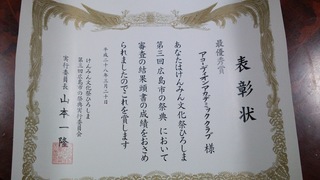 表彰状
最優秀賞
アコーディオンアカデミッククラブ 様
あなたはけんみん文化祭ひろしま
第三回広島市の祭典 において
審査の結果頭書の成績をおさめ
られましたのでこれを賞します
平成二十八年三月二十日
けんみん文化祭ひろしま
第三回広島市の祭典実行委員会
実行委員長 山本一隆